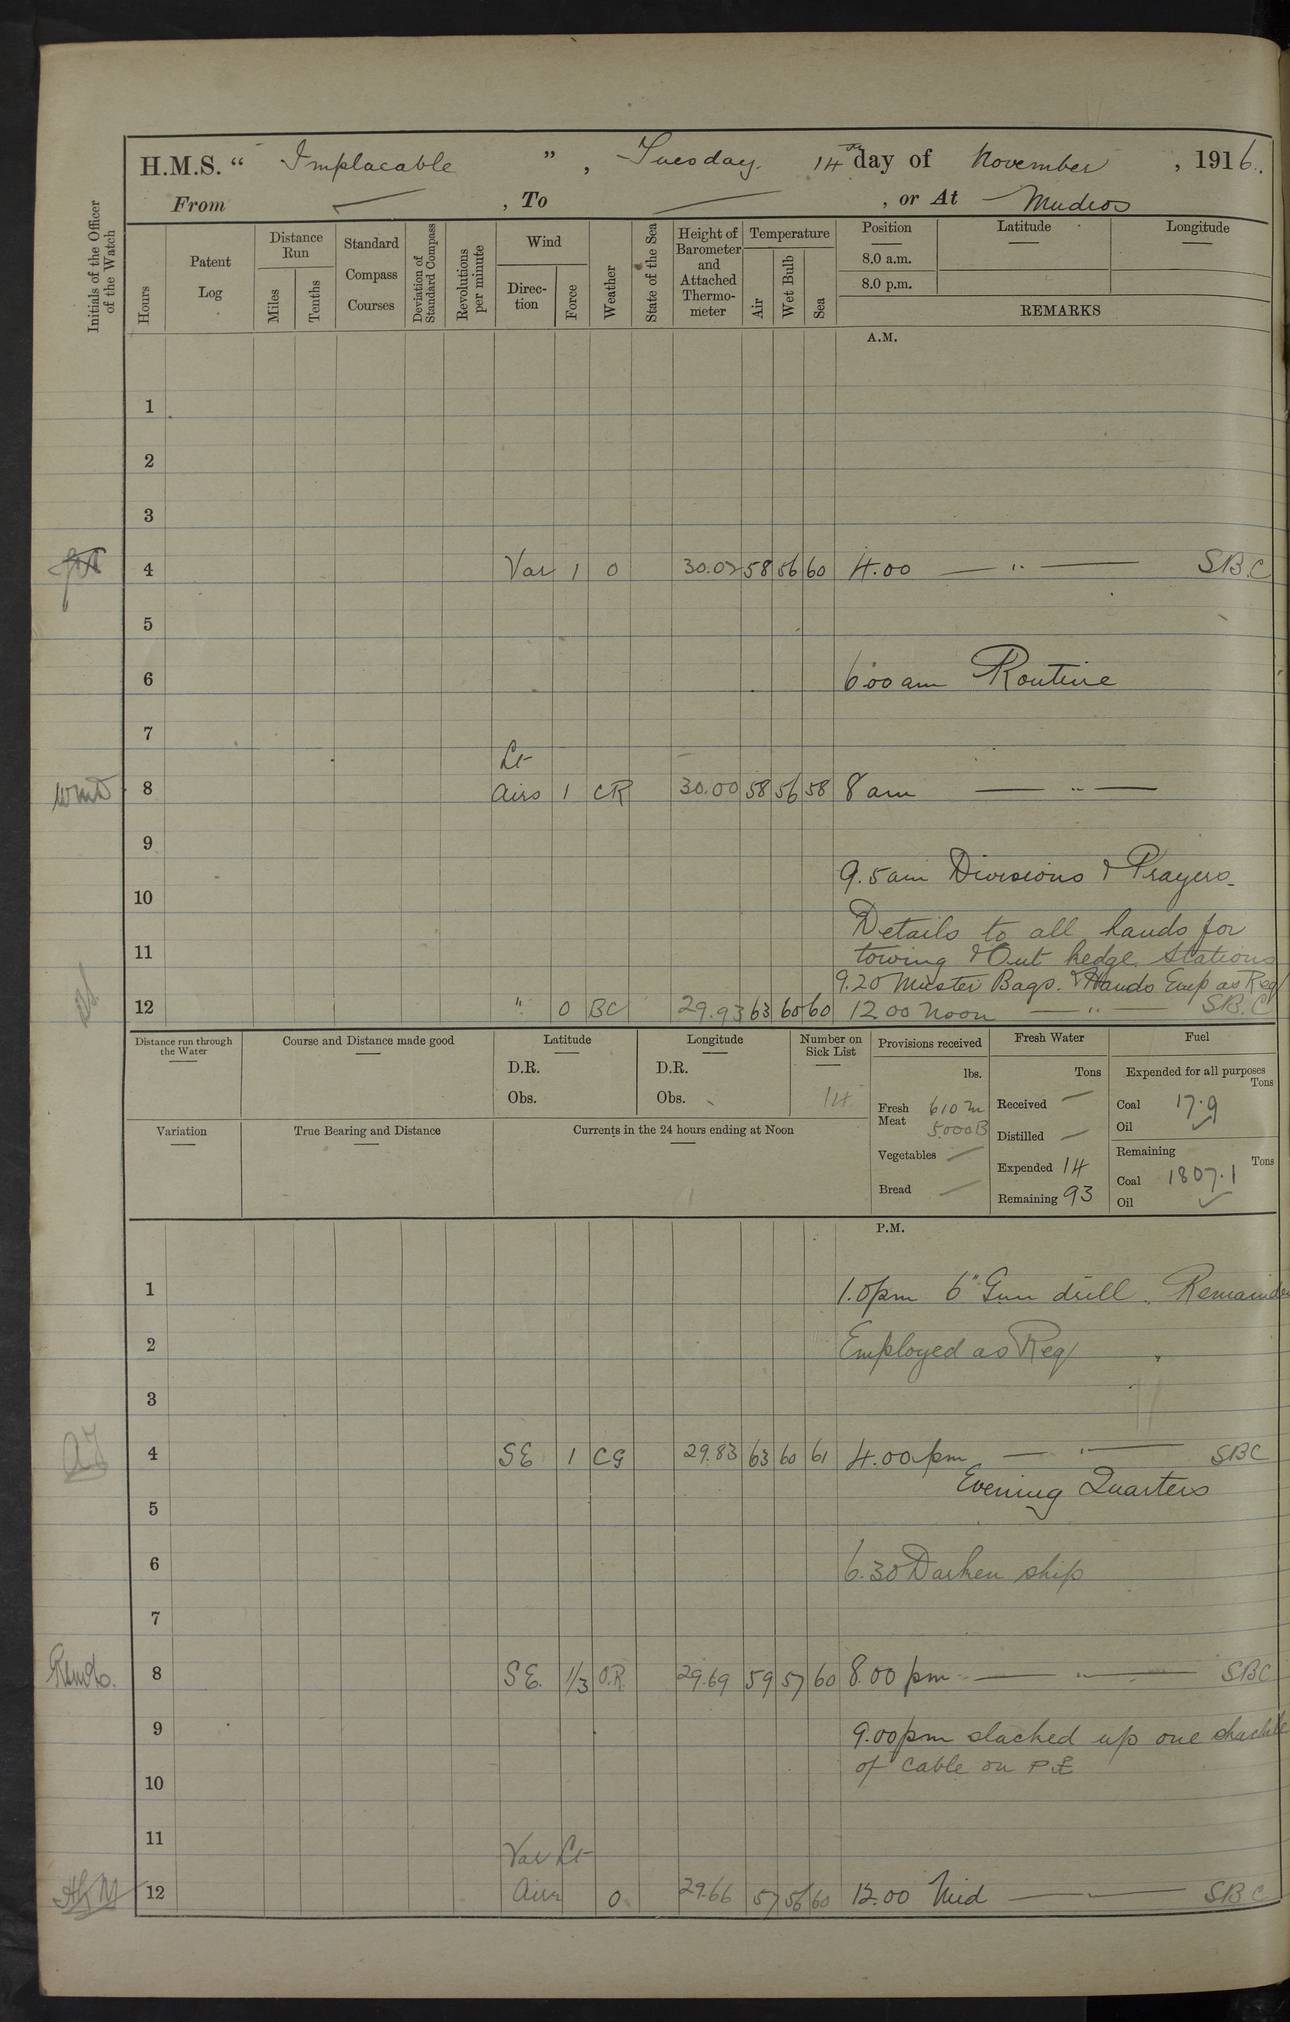 H.M.S. “ Implacable ” , Tuesday. 14th day of November , 1916.
From — , To — , or At Mudros
Initials of the Officer of the Watch
Hours
Patent Log
Distance Run
Miles
Tenths
Standard Compass Courses
Deviation of Standard Compass
Revolutions per minute
Wind
Direction
Force
Weather
State of the Sea
Height of Barometer and Attached Thermometer
Temperature
Air
Wet Bulb
Sea
Position
8.0 a.m.
8.0 p.m.
Latitude
Longitude
REMARKS
A.M.
1
2
3
4 Var 1 O 30.02 58 56 60 4.00 — " — SBC
5
6 6.00 am Routine
7
Lt
8 Airs 1 CR 30.00 58 56 58 8 am — " —
9
9.5 am Divisions & Prayers
10
Details to all hands for
11 towing & Out kedge Stations
9.20 Muster Bags. & Hands Emp as Req/
12 " 0 BC 29.93 63 60 60 12.00 noon — " — SBC
Distance run through the Water
Course and Distance made good
Latitude
D.R.
Obs.
Longitude
D.R.
Obs.
Number on Sick List
14
Provisions received
lbs.
Fresh Meat 610 M
5000 B
Vegetables —
Bread —
Fresh Water
Tons
Received —
Distilled —
Expended 14
Remaining 93
Fuel
Expended for all purposes
Tons
Coal 17.9
Oil
Remaining
Tons
Coal 1807.1
Oil
Variation
True Bearing and Distance
Currents in the 24 hours ending at Noon
P.M.
1 1.0 pm 6" Gun drill. Remainder
2 Employed as Req/
3
4 SE 1 CG 29.83 63 60 61 4.00 pm — " — SBC
Evening Quarters
5
6 6.30 Darken ship
7
8 SE. 1/3 O.R. 29.69 59 57 60 8.00 pm — " — SBC
9 9.00 pm slacked up one shackle
10 of cable on PE
11
Var Lt
12 Airs O 29.66 57 56 60 12.00 Mid — SBC